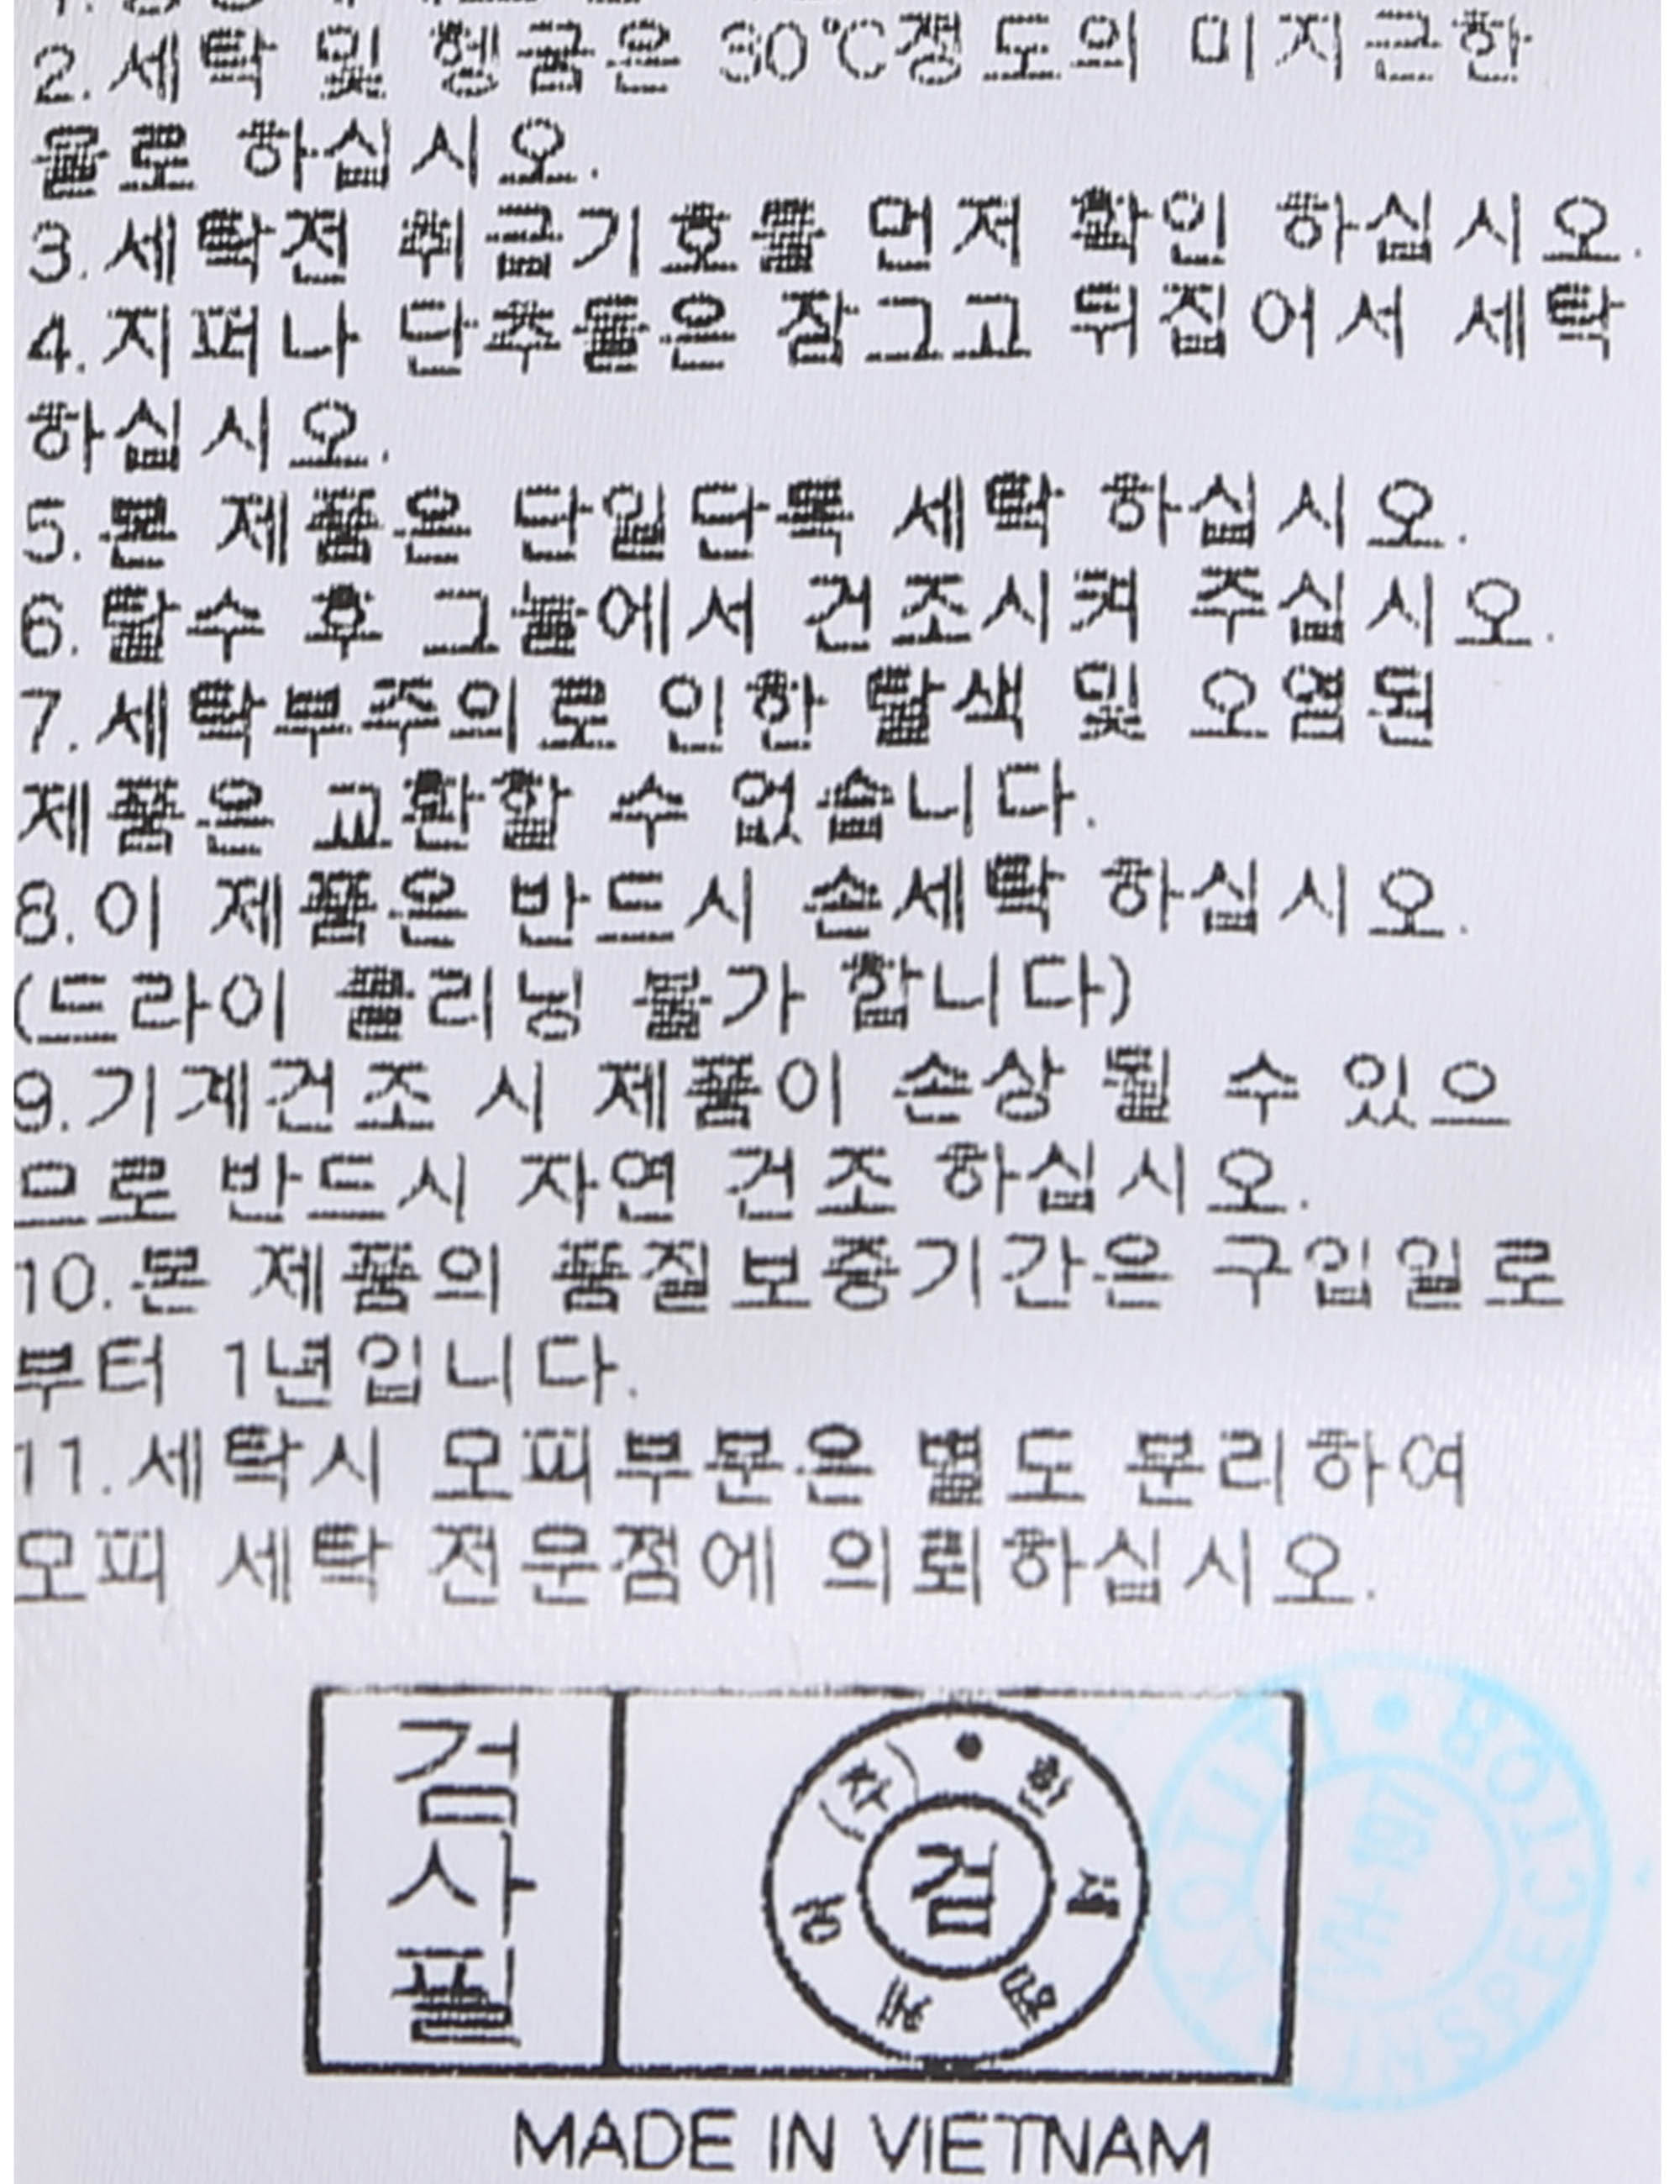 2.세탁 및 헹굼은 30℃정도의 미지근한
물로 하십시오.
3.세탁전 취급기호를 먼저 확인 하십시오.
4.지퍼나 단추들은 잠그고 뒤집어서 세탁
하십시오.
5.본 제품은 단일단독 세탁 하십시오.
6.탈수 후 그늘에서 건조시켜 주십시오.
7.세탁부주의로 인한 탈색 및 오염된
제품은 교환할 수 없습니다.
8.이 제품은 반드시 손세탁 하십시오.
(드라이 클리닝 불가 합니다)
9.기계건조 시 제품이 손상 될 수 있으
므로 반드시 자연 건조 하십시오.
10.본 제품의 품질보증기간은 구입일로
부터 1년입니다.
11.세탁시 모피부분은 별도 분리하여
모피 세탁 전문점에 의뢰하십시오.
검
사
필
(주)한세엠케이
검
KOTITI
INSPECTOR
MADE IN VIETNAM